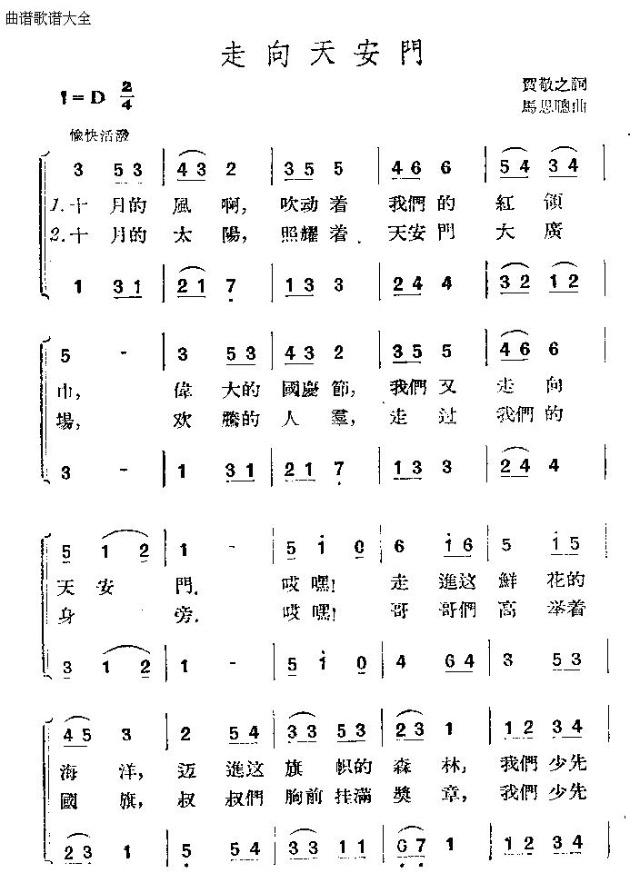 曲谱歌谱大全
走向天安門
1=D 2/4
賀敬之詞
馬思聰曲
愉快活潑
3 53 | 43 2 | 35 5 | 46 6 | 54 34 |
1.十月的風啊,吹动着我們的紅領
2.十月的太陽,照耀着天安門大廣
1 31 | 21 7 | 13 3 | 24 4 | 32 12 |
5 - | 3 53 | 43 2 | 35 5 | 46 6 |
巾,偉大的國慶節,我們又走向
場,欢騰的人羣,走过我們的
3 - | 1 31 | 21 7 | 13 3 | 24 4 |
5 12 | 1 - | 51 0 | 6 16 | 5 15 |
天安門.哎嘿!走進这鮮花的
身旁.哎嘿!哥哥們高举着
3 12 | 1 - | 51 0 | 4 64 | 3 53 |
45 3 | 2 54 | 33 53 | 23 1 | 12 34 |
海洋,迈進这旗帜的森林,我們少先
國旗,叔叔們胸前挂滿獎章,我們少先
23 1 | 5 54 | 33 11 | 67 1 | 12 34 |